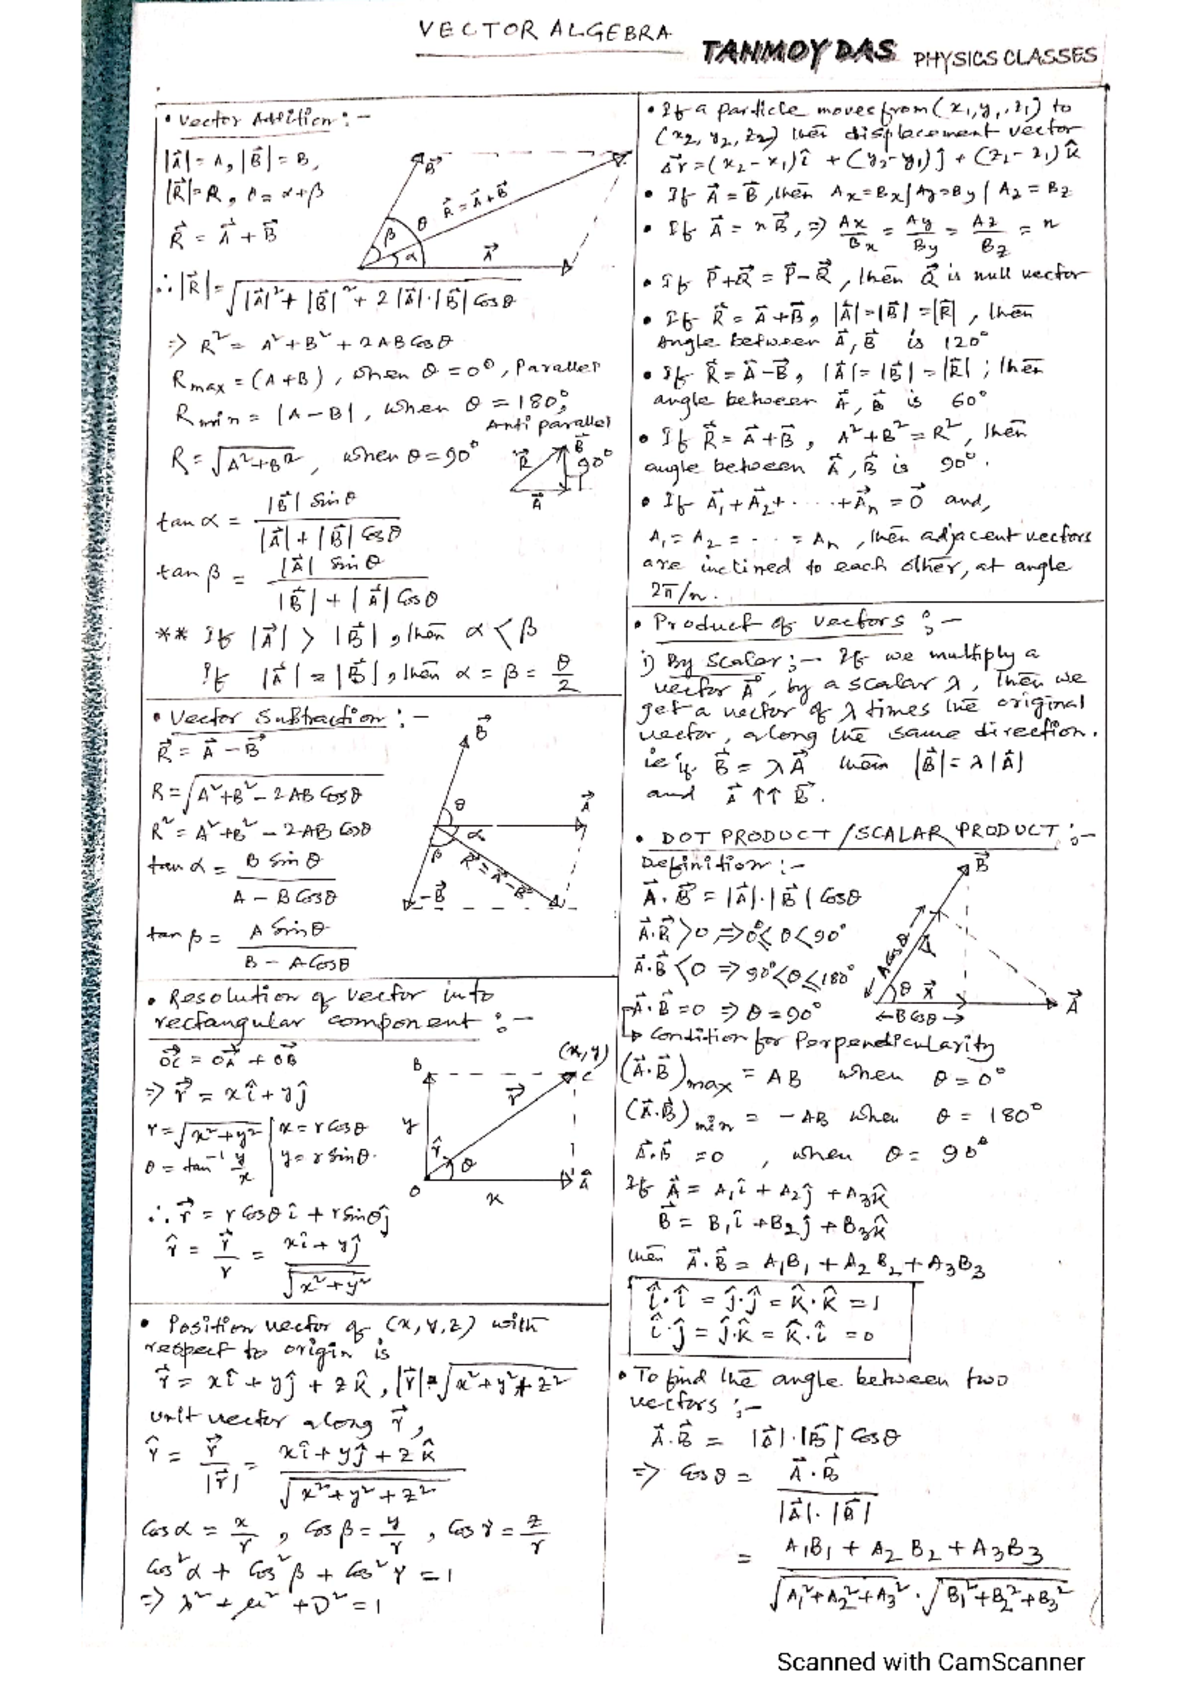 VECTOR ALGEBRA
TANMOY DAS PHYSICS CLASSES
• Vector Addition :-
|A⃗| = A, |B⃗| = B,
|R⃗| = R, θ = α+β
R⃗ = A⃗ + B⃗
B⃗
R⃗ = A⃗ + B⃗
θ
β
α
A⃗
∴ |R⃗| = √(|A⃗|² + |B⃗|² + 2|A⃗|·|B⃗| Cosθ)
⇒ R² = A² + B² + 2AB Cosθ
R max = (A+B), when θ = 0°, Parallel
R min = |A-B|, when θ = 180°,
Anti parallel
R = √(A²+B²), when θ = 90°
R⃗ B⃗ 90° A⃗
tan α = |B⃗| Sinθ / (|A⃗| + |B⃗| Cosθ)
tan β = |A⃗| Sinθ / (|B⃗| + |A⃗| Cosθ)
** If |A⃗| > |B⃗|, then α < β
If |A⃗| = |B⃗|, then α = β = θ/2
• Vector Subtraction :-
R⃗ = A⃗ - B⃗
R = √(A²+B² - 2AB Cosθ)
R² = A²+B² - 2AB Cosθ
tan α = B Sinθ / (A - B Cosθ)
tan β = A Sinθ / (B - A Cosθ)
B⃗
θ
A⃗
α
β
R⃗ = A⃗ - B⃗
-B⃗
• Resolution of vector into
rectangular component :-
OC⃗ = OA⃗ + OB⃗
⇒ r⃗ = xî + yĵ
r = √(x²+y²) | x = r Cosθ
θ = tan⁻¹ y/x | y = r Sinθ
∴ r⃗ = r Cosθ î + r Sinθ ĵ
r̂ = r⃗/r = (xî + yĵ)/√(x²+y²)
B
(x,y)
C
r⃗
y
r̂
θ
O
x
A⃗
• Position vector of (x, y, z) with
respect to origin is
r⃗ = xî + yĵ + zk̂, |r⃗| = √(x²+y²+z²)
unit vector along r⃗,
r̂ = r⃗/|r⃗| = (xî + yĵ + zk̂)/√(x²+y²+z²)
Cosα = x/r, Cosβ = y/r, Cosγ = z/r
Cos²α + Cos²β + Cos²γ = 1
⇒ λ² + μ² + ν² = 1
• If a particle moves from (x₁, y₁, z₁) to
(x₂, y₂, z₂) then displacement vector
Δr⃗ = (x₂ - x₁)î + (y₂ - y₁)ĵ + (z₂ - z₁)k̂
• If A⃗ = B⃗, then Ax = Bx | Ay = By | Az = Bz
• If A⃗ = nB⃗, ⇒ Ax/Bx = Ay/By = Az/Bz = n
• If P⃗+Q⃗ = P⃗-Q⃗, then Q⃗ is null vector
• If R⃗ = A⃗+B⃗, |A⃗|=|B⃗|=|R⃗|, then
Angle between A⃗, B⃗ is 120°
• If R⃗ = A⃗-B⃗, |A⃗|=|B⃗|=|R⃗|; then
angle between A⃗, B⃗ is 60°
• If R⃗ = A⃗+B⃗, A²+B² = R², then
angle between A⃗, B⃗ is 90°.
• If A⃗₁+A⃗₂+.....+A⃗n = 0⃗ and,
A₁ = A₂ = ... = An, then adjacent vectors
are inclined to each other, at angle
2π/n.
• Product of vectors :-
i) By Scalar :- If we multiply a
vector A⃗, by a scalar λ, Then we
get a vector of λ times the original
vector, along the same direction.
ie if B⃗ = λA⃗ then |B⃗| = λ|A⃗|
and A⃗ ↑↑ B⃗.
• DOT PRODUCT / SCALAR PRODUCT :-
Definition :-
A⃗.B⃗ = |A⃗|.|B⃗| Cosθ
A⃗.B⃗ > 0 ⇒ 0° ≤ θ < 90°
A⃗.B⃗ < 0 ⇒ 90° < θ ≤ 180°
A⃗.B⃗ = 0 ⇒ θ = 90°
↳ Condition for Perpendicularity
B⃗
A Cosθ
θ
A⃗
←B Cosθ→
(A⃗.B⃗) max = AB when θ = 0°
(A⃗.B⃗) min = -AB when θ = 180°
A⃗.B⃗ = 0, when θ = 90°
If A⃗ = A₁î + A₂ĵ + A₃k̂
B⃗ = B₁î + B₂ĵ + B₃k̂
then A⃗.B⃗ = A₁B₁ + A₂B₂ + A₃B₃
î.î = ĵ.ĵ = k̂.k̂ = 1
î.ĵ = ĵ.k̂ = k̂.î = 0
• To find the angle between two
vectors :-
A⃗.B⃗ = |A⃗|.|B⃗| Cosθ
⇒ Cosθ = A⃗.B⃗ / |A⃗|.|B⃗|
= (A₁B₁ + A₂B₂ + A₃B₃) / (√(A₁²+A₂²+A₃²) . √(B₁²+B₂²+B₃²))
Scanned with CamScanner